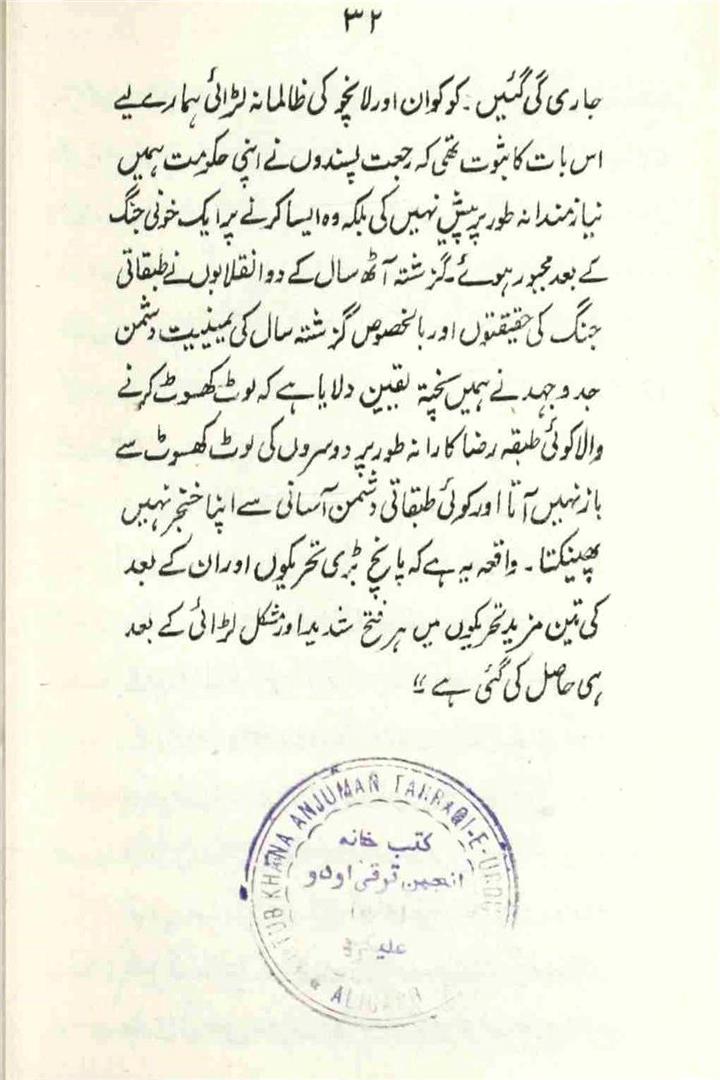 ۳۲
جاری کی گئیں۔ کوکوان اور لانچو کی ظالمانہ لڑائی ہمارے لیے
اس بات کا ثبوت تھی کہ رجعت پسندوں نے اپنی حکومت ہمیں
نیازمندانہ طور پر پیش نہیں کی بلکہ وہ ایسا کرنے پر ایک خونی جنگ
کے بعد مجبور ہوئے۔ گزشتہ آٹھ سال کے دو انقلابوں نے طبقاتی
جنگ کی حقیقتوں اور بالخصوص گزشتہ سال کی یمینیت دشمن
جدوجہد نے ہمیں پختہ یقین دلایا ہے کہ لوٹ کھسوٹ کرنے
والا کوئی طبقہ رضاکارانہ طور پر دوسروں کی لوٹ کھسوٹ سے
باز نہیں آتا اور کوئی طبقاتی دشمن آسانی سے اپنا خنجر نہیں
پھینکتا۔ واقعہ یہ ہے کہ پانچ بڑی تحریکوں اور ان کے بعد
کی تین مزید تحریکوں میں ہر فتح شدید اور مشکل لڑائی کے بعد
ہی حاصل کی گئی ہے "
KUTUB KHANA ANJUMAN TARRAQI-E-URDU
کتب خانہ
انجمن ترقی اردو
ALIGARH